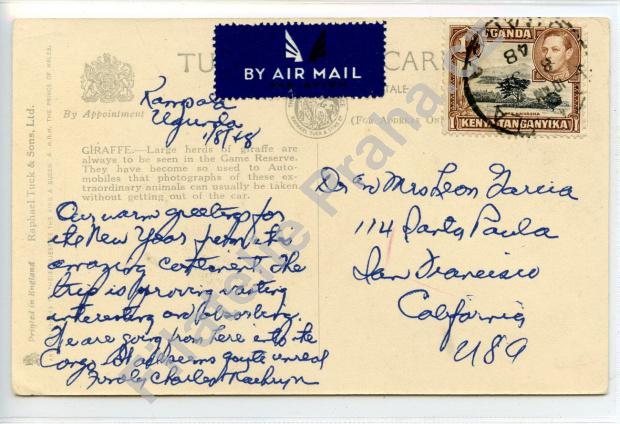 TU CARD
BY AIR MAIL
By Appointment
(FOR ADDRESS ON
UGANDA
KENYA TANGANYIKA
48
Kampala
Uganda
1/8/48
GIRAFFE.—Large herds of giraffe are
always to be seen in the Game Reserve.
They have become so used to Auto-
mobiles that photographs of these ex-
traordinary animals can usually be taken
without getting out of the car.
Our warm greetings for
the New Year from this
amazing continent The
trip is proving
interesting and absorbing.
We are going from here into the
Congo. It seems quite unreal
Fondly Charles
Dr & Mrs Leon Garcia
114 Santa Paula
San Francisco
California
USA
Printed in England
Raphael Tuck & Sons, Ltd.
Filatelie Praha